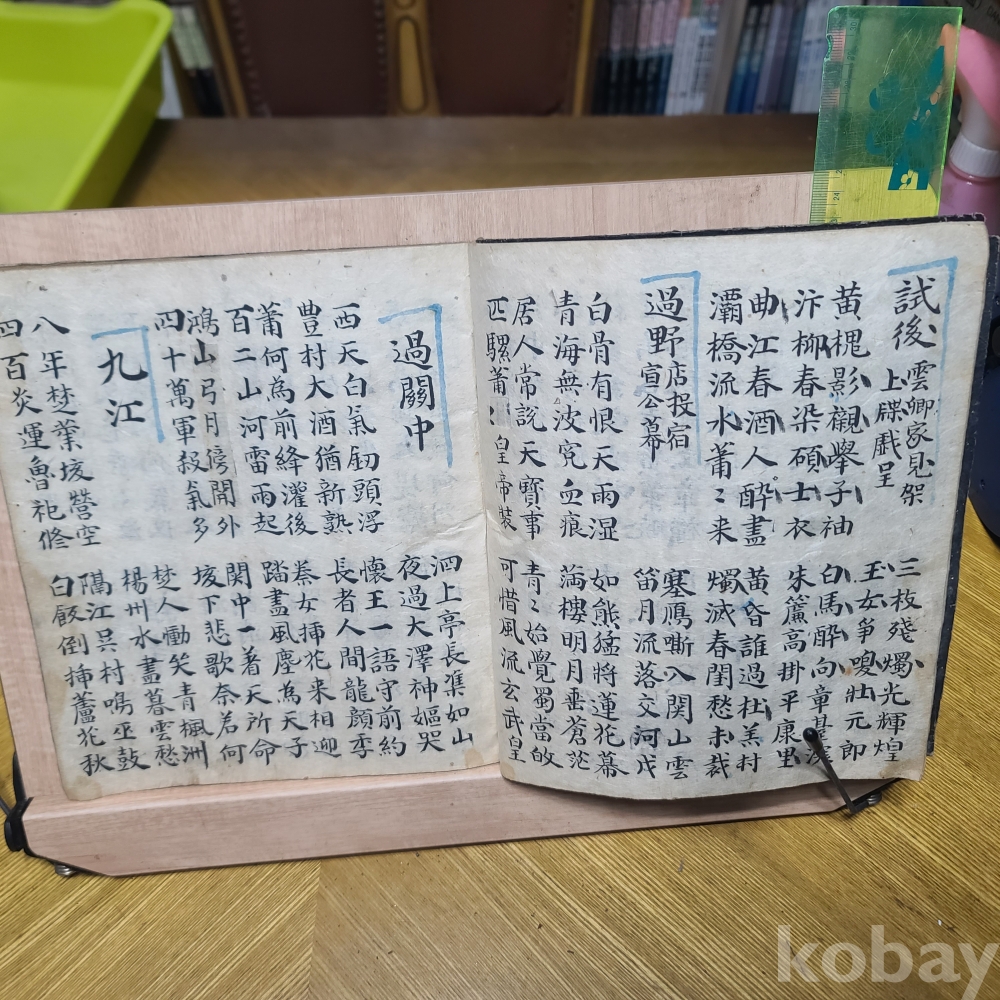 試後 雲卿家見架
上牒戱呈
三枝殘燭光輝煌
玉女爭喚壯元郎
黄槐影襯擧子袖
白馬酔向章
汴柳春染碩士衣
朱簾高掛平康里
曲江春酒人酔盡
黄昏誰過杜羔村
灞橋流水蕭〻来
燭滅春閨愁未裁
過野店投宿
宣公幕
塞鴈嘶入関山雲
笛月流落交河戌
白骨有恨天雨湿
如熊猛將蓮花幕
青海無波寃血痕
満樓明月垂蒼茫
居人常説天寶事
青〻始覺蜀當故
匹騾蕭〻皇帝裝
可惜風流玄武皇
過關中
泗上亭長集如山
夜過大澤神嫗哭
西天白氣釰頭浮
懷王一語守前約
豊村大酒猶新熟
長者人間龍顔季
蕭何為前絳灌後
秦女挿花来相迎
百二山河雷雨起
踏盡風塵為天子
鴻山弓月傍開外
関中一着天所命
四十萬軍殺氣多
垓下悲歌奈若何
九江
楚人慟笑青楓洲
楊州水盡暮雲愁
八年楚業垓營空
隔江呉村鳴巫鼓
四百炎運魯祀修
白飯倒挿蘆花秋
kobay